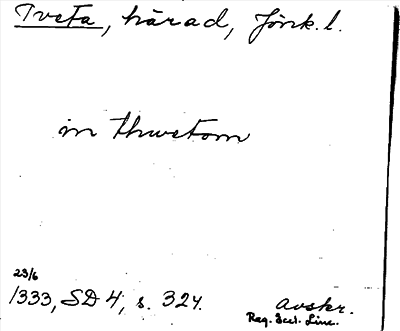 Tveta, härad, Jönk. l.
in thwetom
23/6
1333, SD 4, s. 324.
avskr.
Reg. Eccl. Linc.